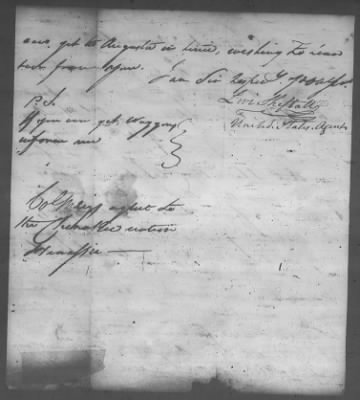 can get to Augusta in time, wishing to hear
from you.
I am Sir respecy. yr Ob. Sr.
Levi Sheftall
United States Agent
P.S.
If you can get waggons
inform me
Colo. agent to
the Cherokee nation
Tenassee